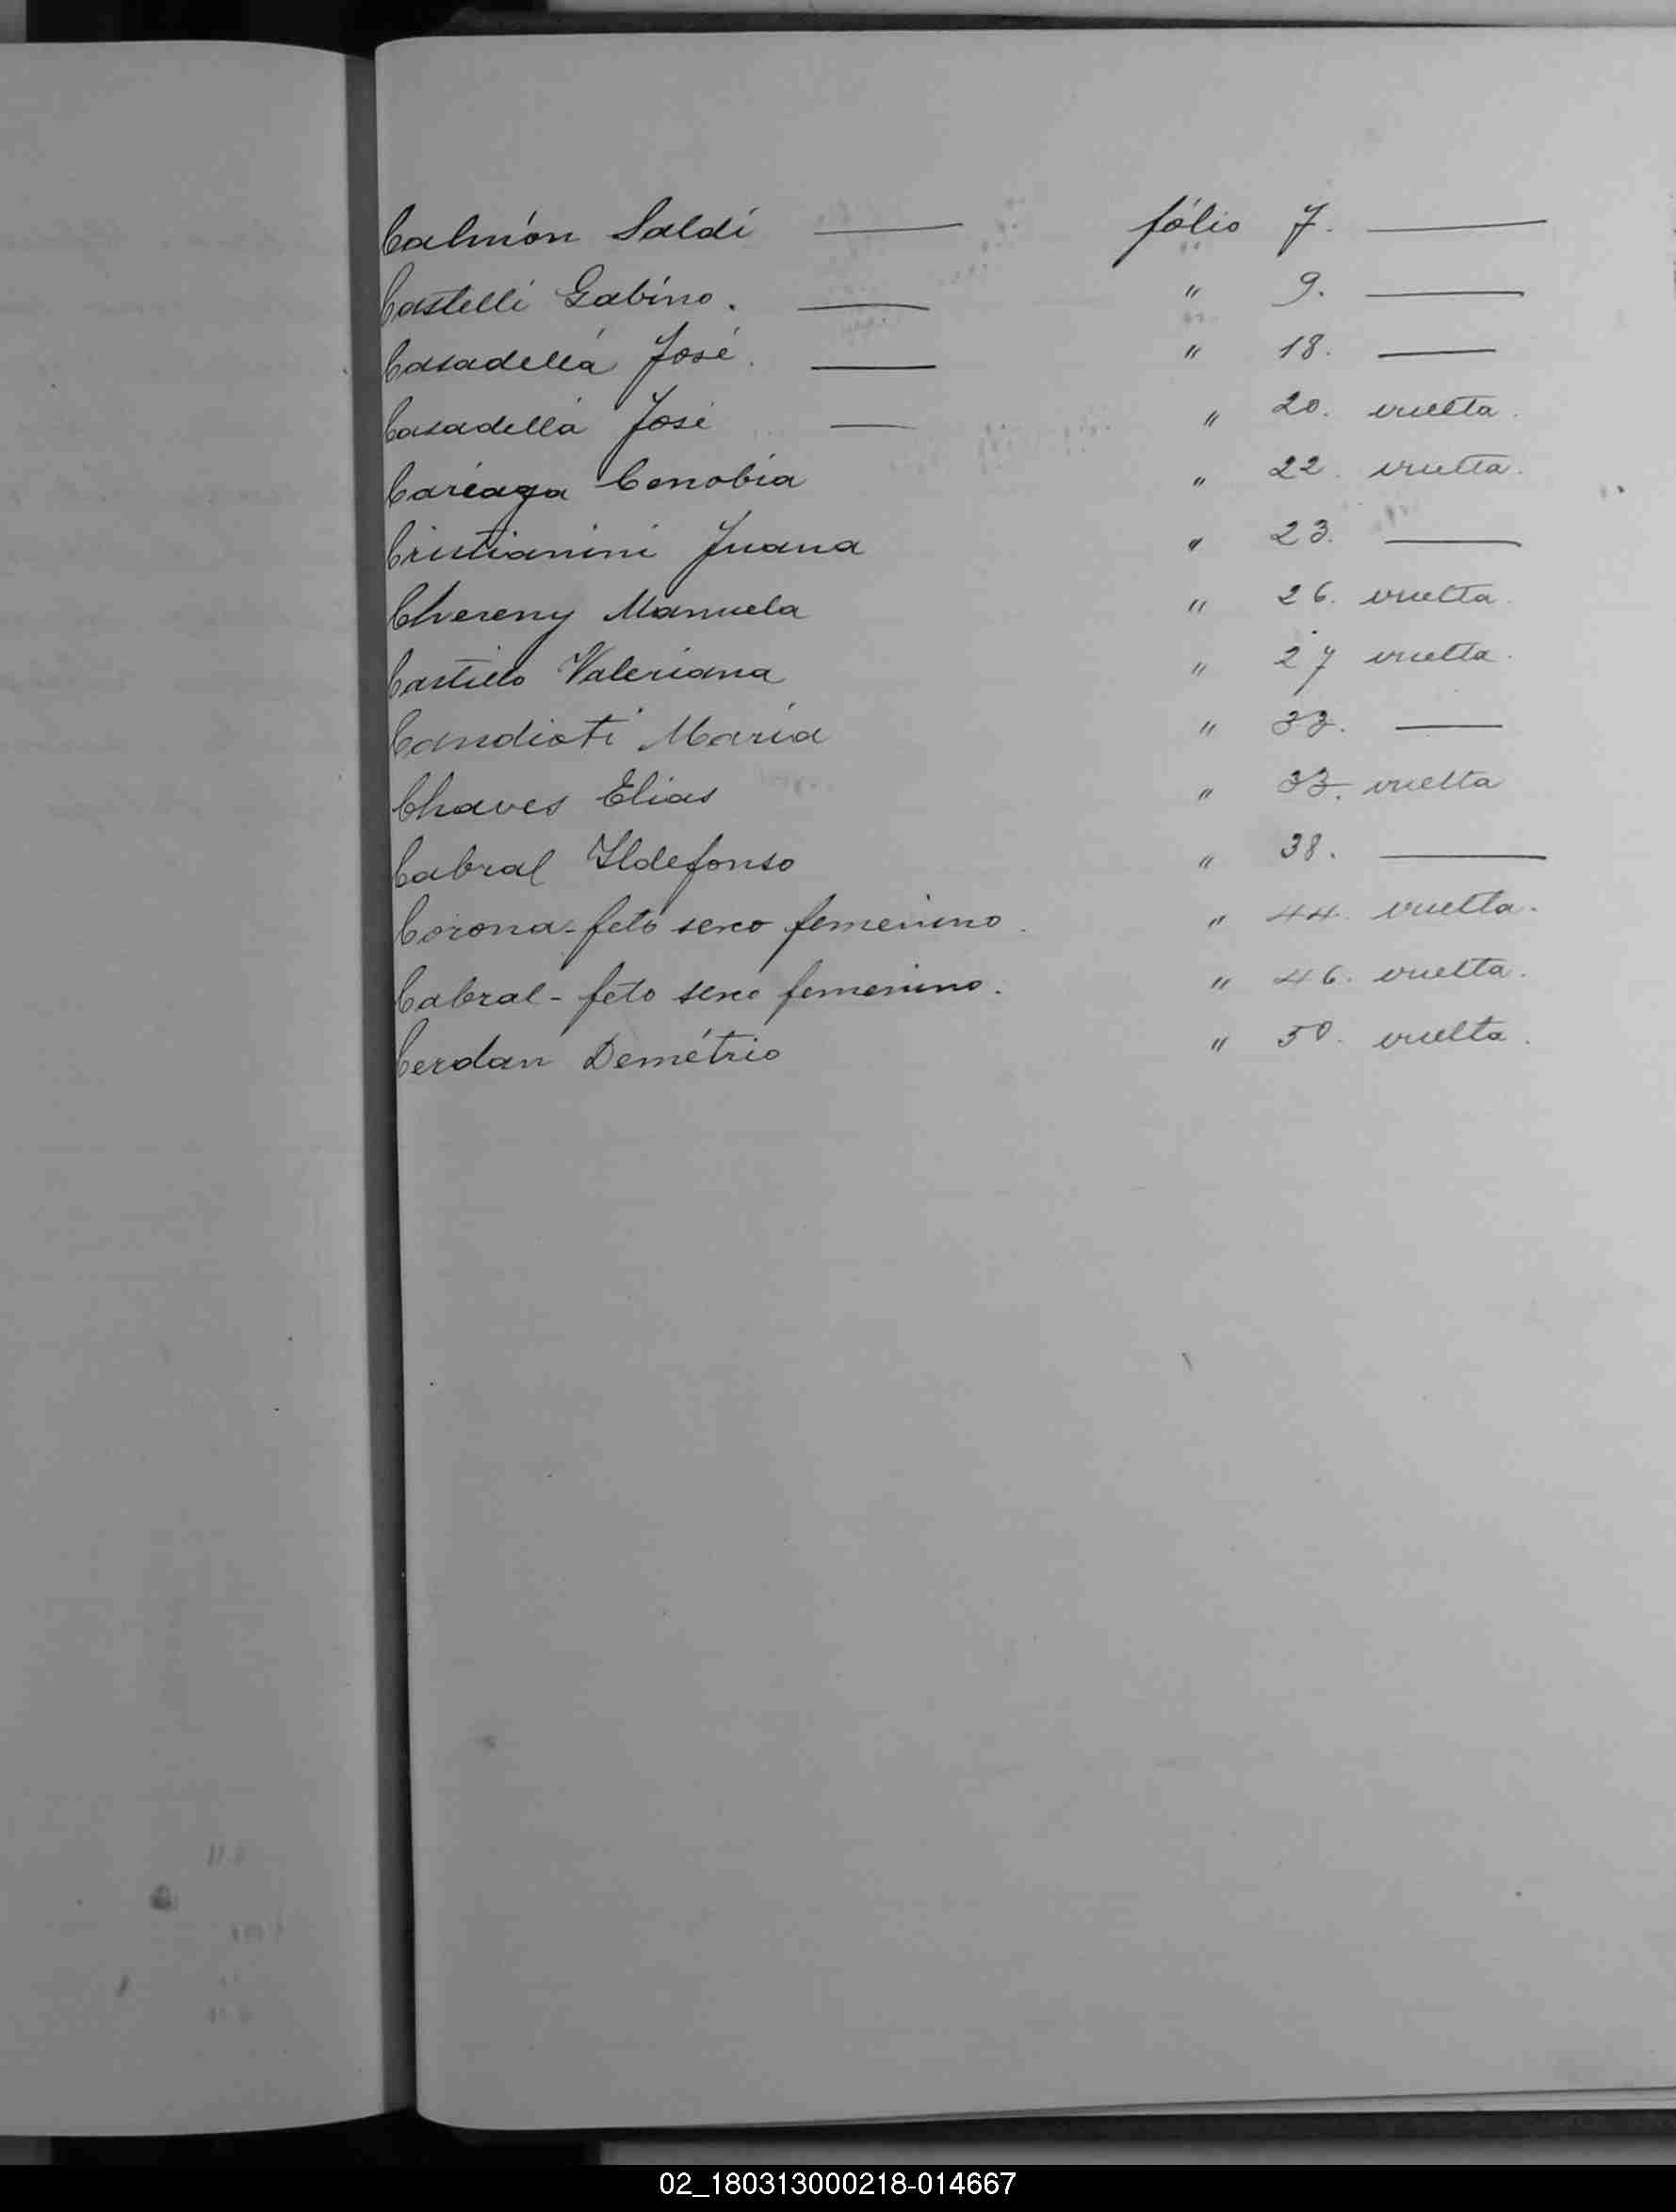 Calmón Saldi —— fólio 7. ——
Castelli Gabino. —— " 9. ——
Casadellá José. —— " 18. ——
Casadellá José —— " 20. vuelta.
Careaga Cenobia " 22. vuelta.
Cristianini Juana " 23. ——
Chereny Manuela " 26. vuelta.
Castillo Valeriana " 27 vuelta.
Candioti María " 33. ——
Chaves Elias " 33. vuelta
Cabral Ildefonso " 38. ——
Corona - feto sexo femenino. " 44. vuelta.
Cabral - feto sexo femenino. " 46. vuelta.
Cerdan Demétrio " 50. vuelta.
02_180313000218-014667